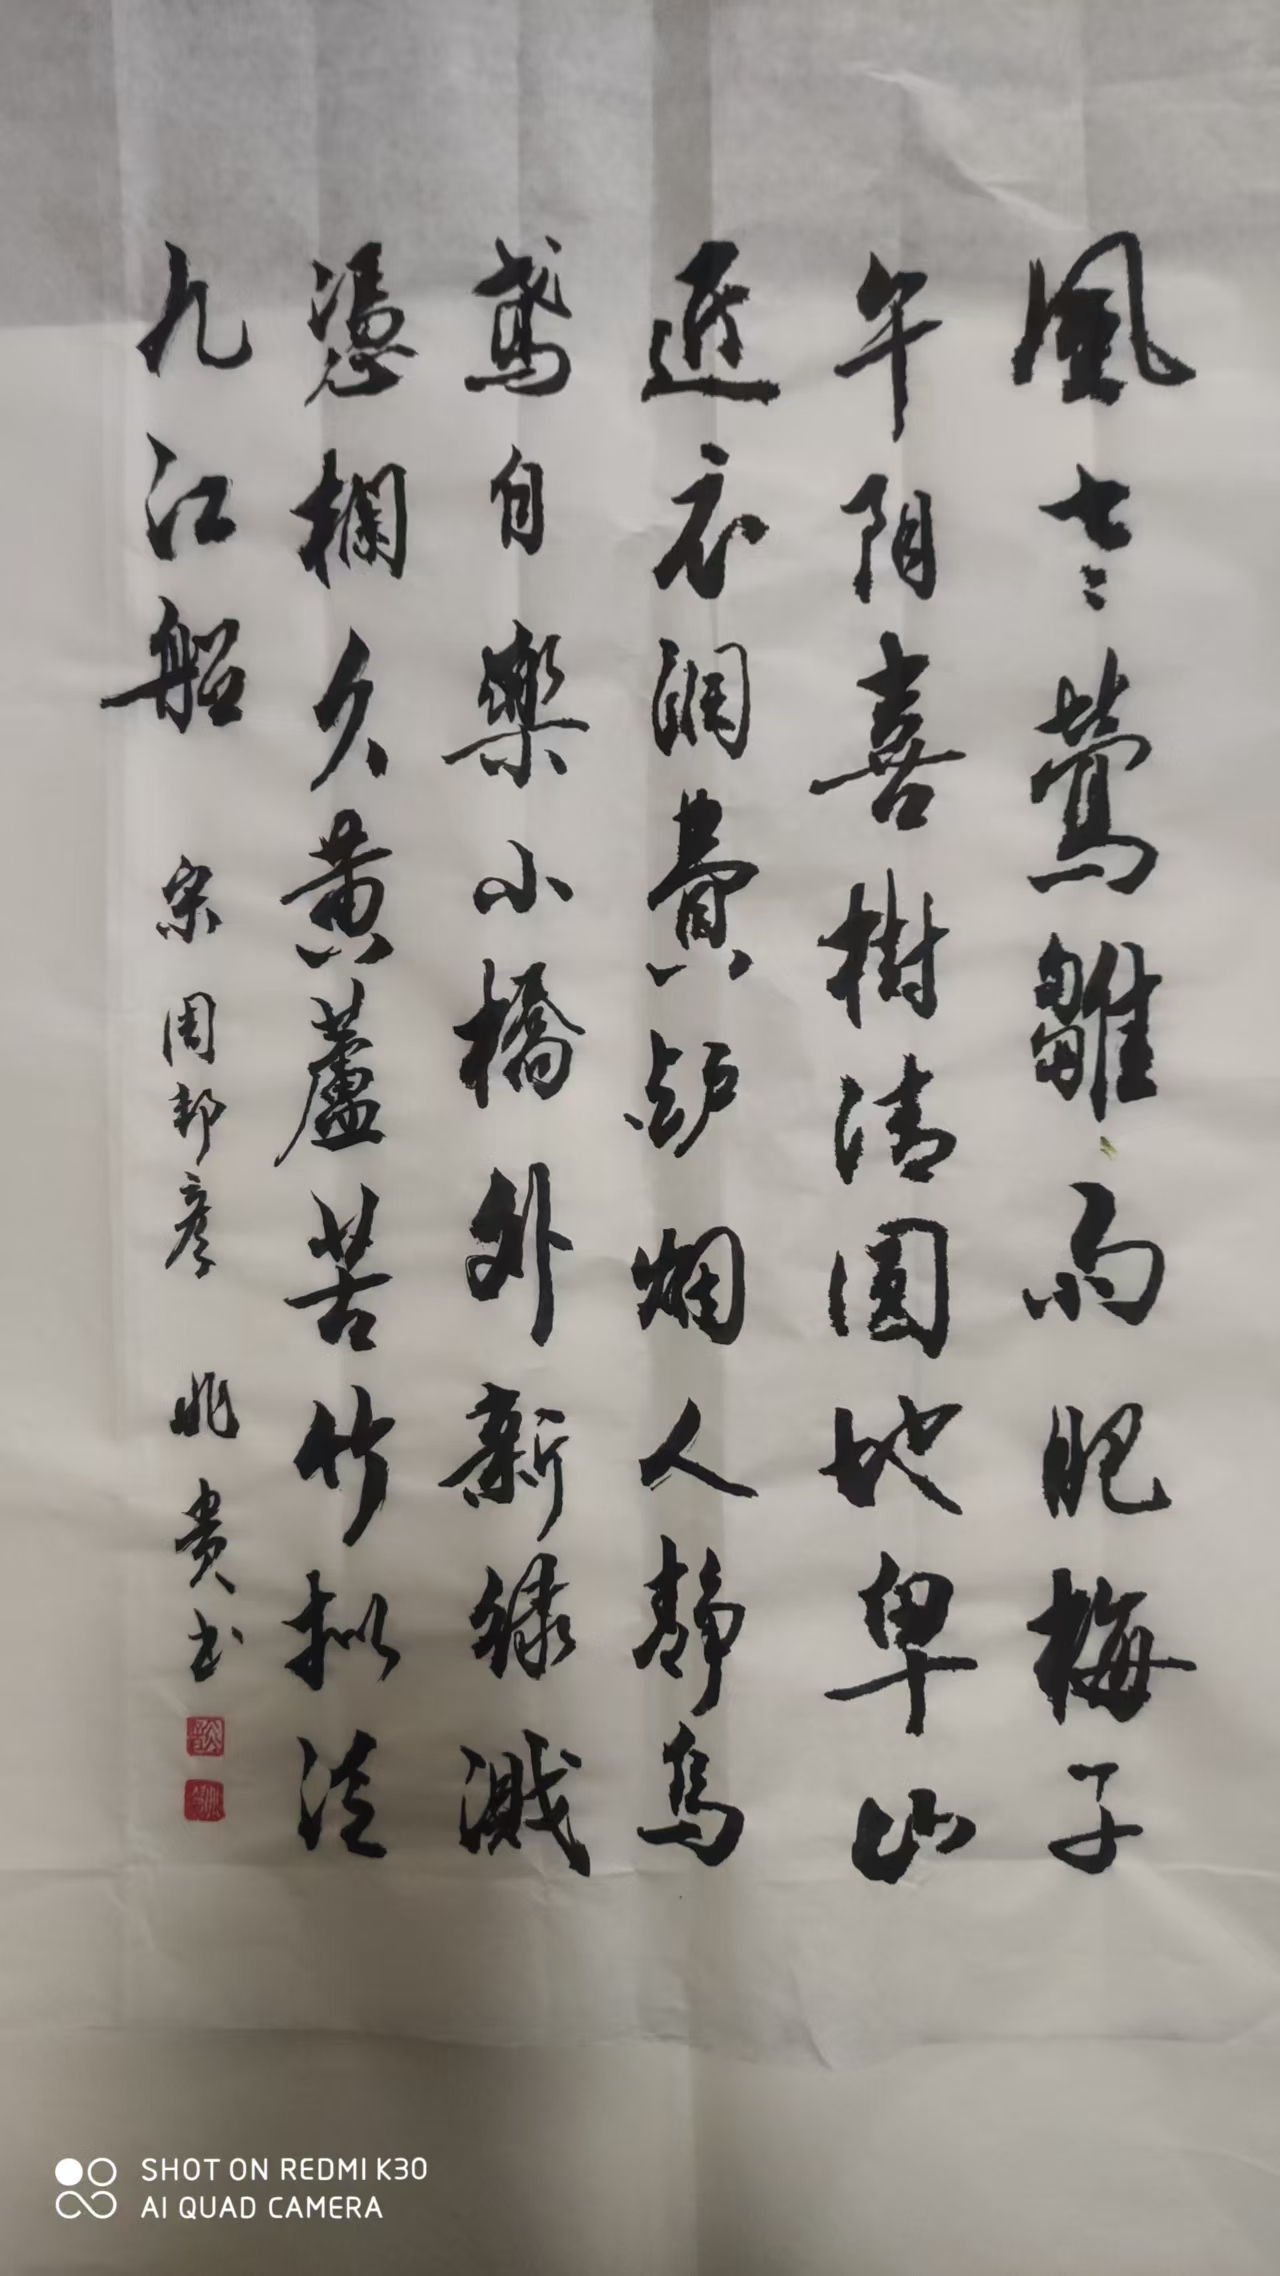 風老鶯雛雨肥梅子
午阴喜樹清圓地卑山
近衣潤費炉烟人静烏
鳶自樂小橋外新绿濺
憑欄久黄蘆苦竹拟泛
九江船 宋 周邦彦 兆贵书
SHOT ON REDMI K30
AI QUAD CAMERA